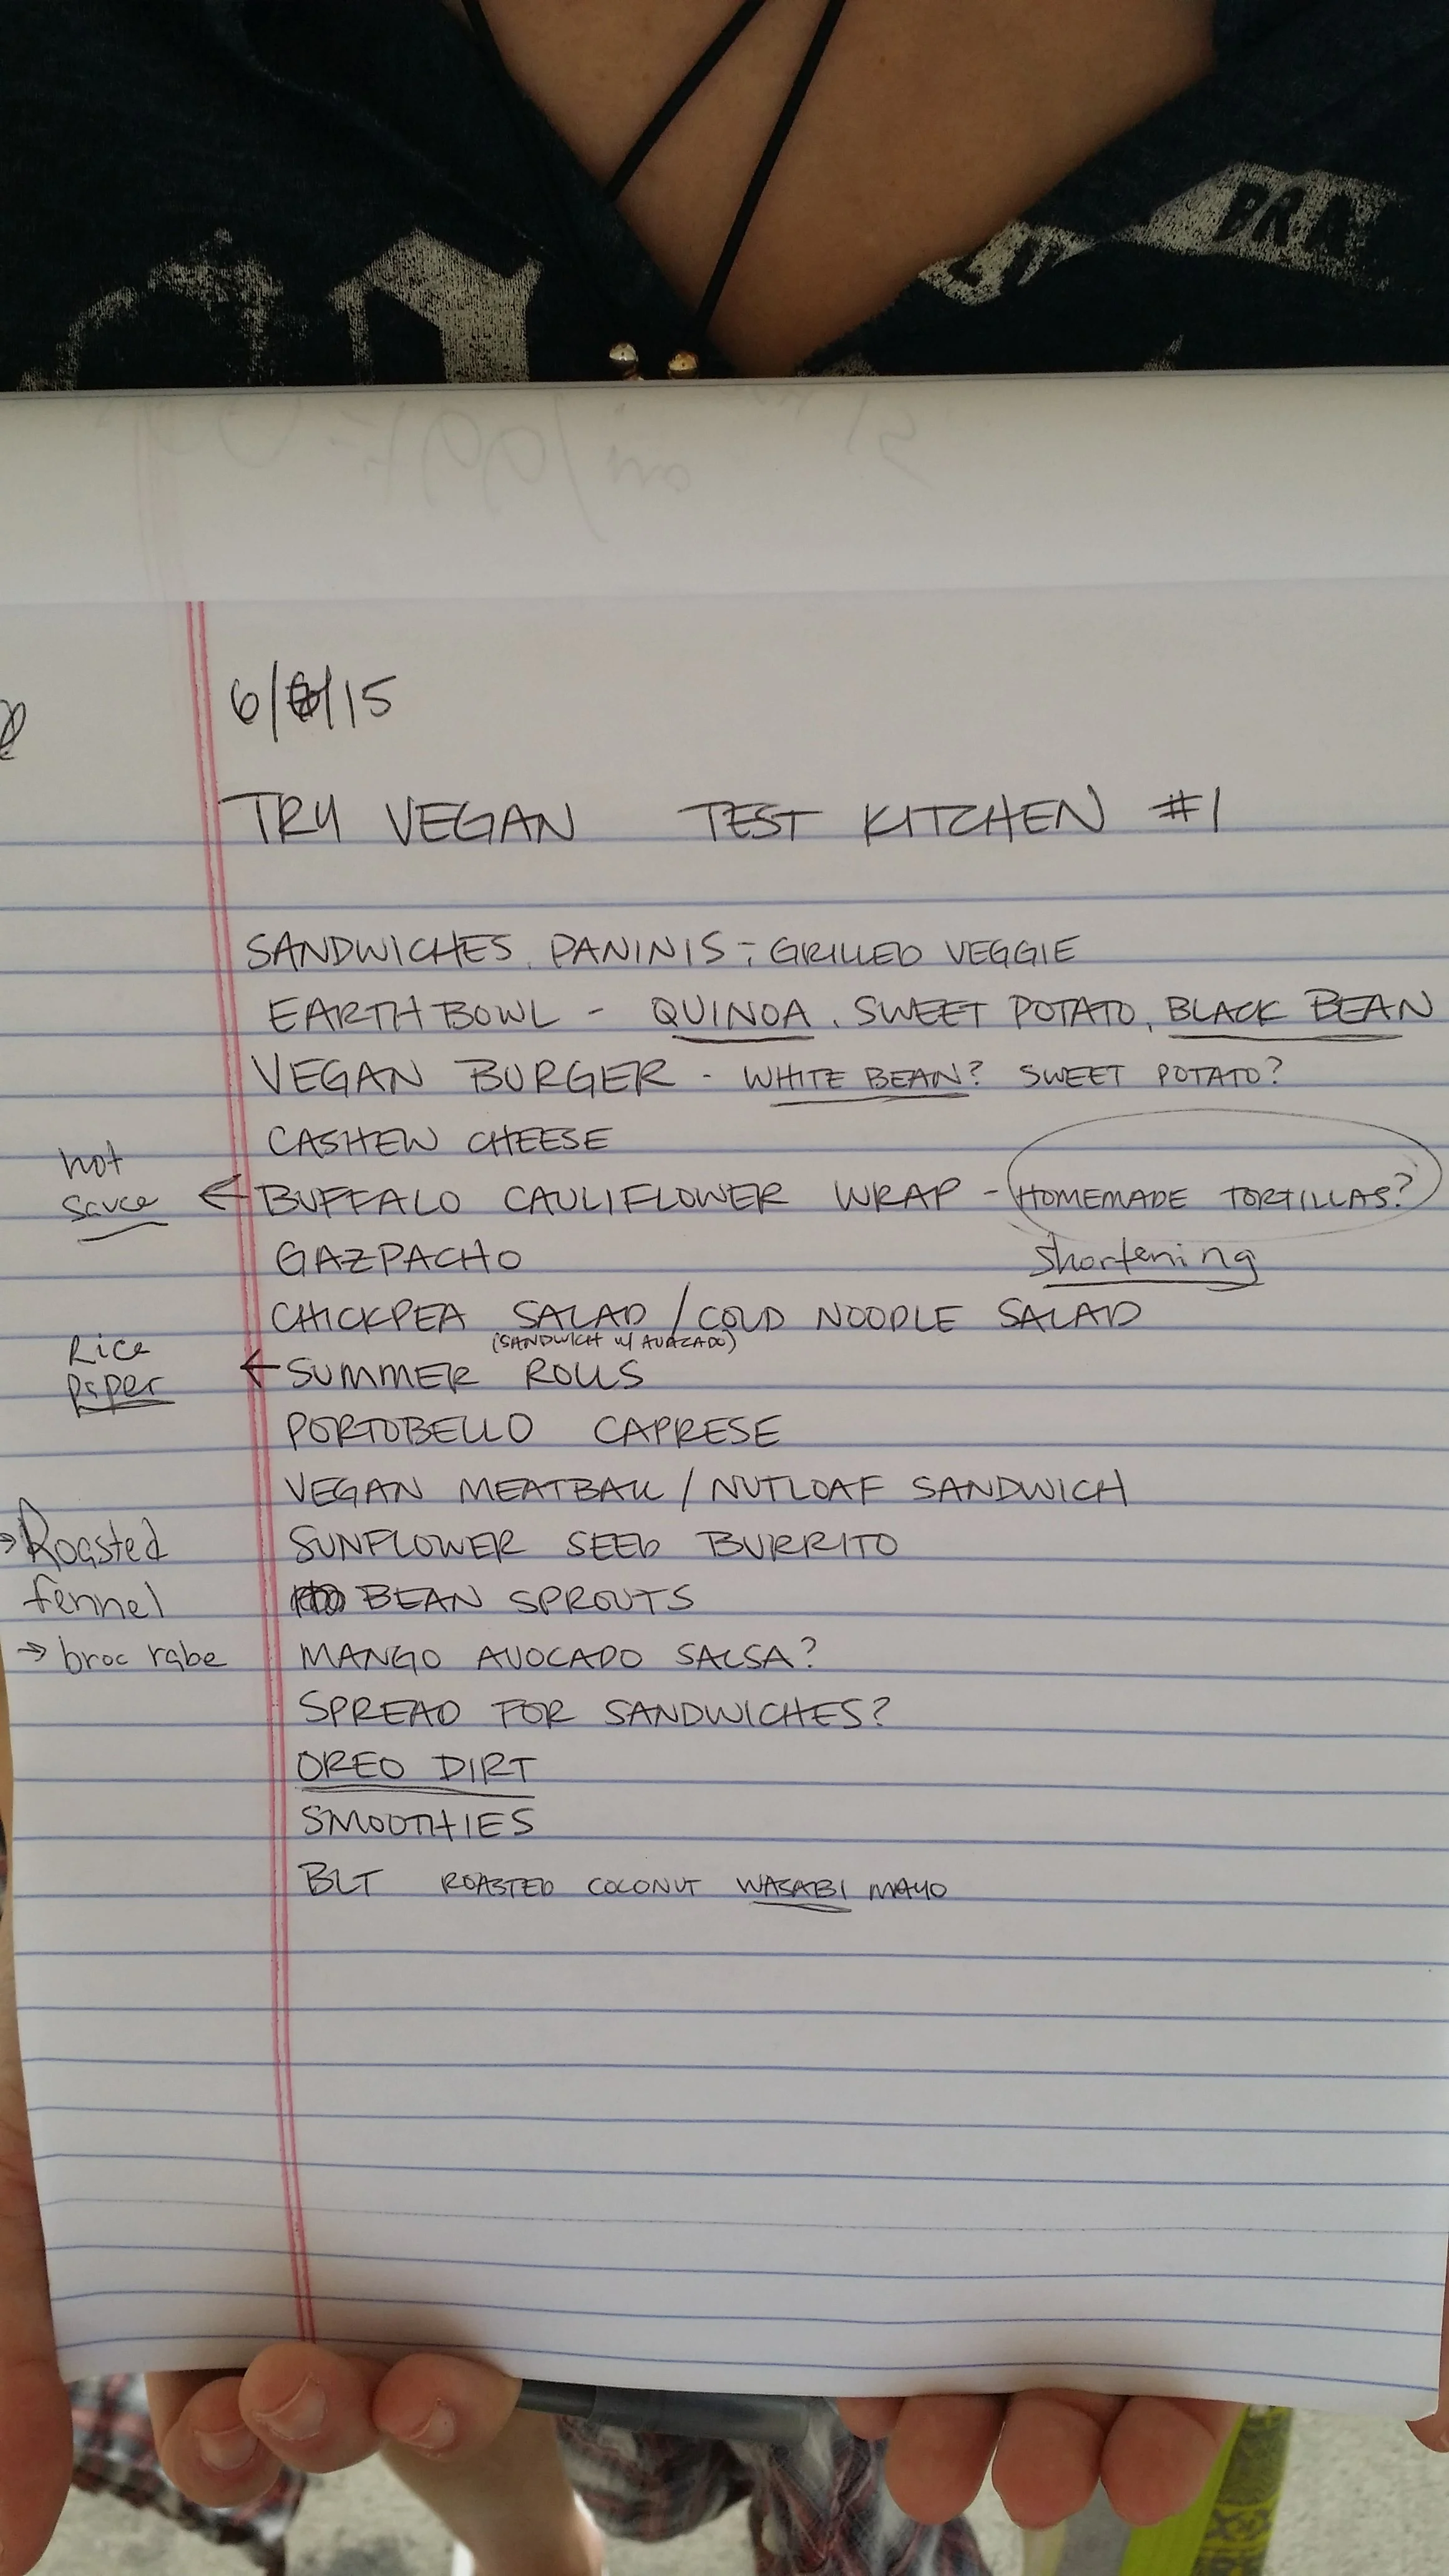 6/ /15
TRY VEGAN TEST KITCHEN #1
SANDWICHES, PANINIS - GRILLED VEGGIE
EARTH BOWL - QUINOA, SWEET POTATO, BLACK BEAN
VEGAN BURGER - WHITE BEAN? SWEET POTATO?
CASHEW CHEESE
hot
sauce
← BUFFALO CAULIFLOWER WRAP - HOMEMADE TORTILLAS?
GAZPACHO
Shortening
CHICKPEA SALAD / COLD NOODLE SALAD
(SANDWICH W/ AVACADO)
Rice
paper
← SUMMER ROLLS
PORTOBELLO CAPRESE
VEGAN MEATBALL / NUTLOAF SANDWICH
→ Roasted
fennel
SUNFLOWER SEED BURRITO
BEAN SPROUTS
→ broc rabe
MANGO AVOCADO SALSA?
SPREAD FOR SANDWICHES?
OREO DIRT
SMOOTHIES
BLT ROASTED COCONUT WASABI MAYO